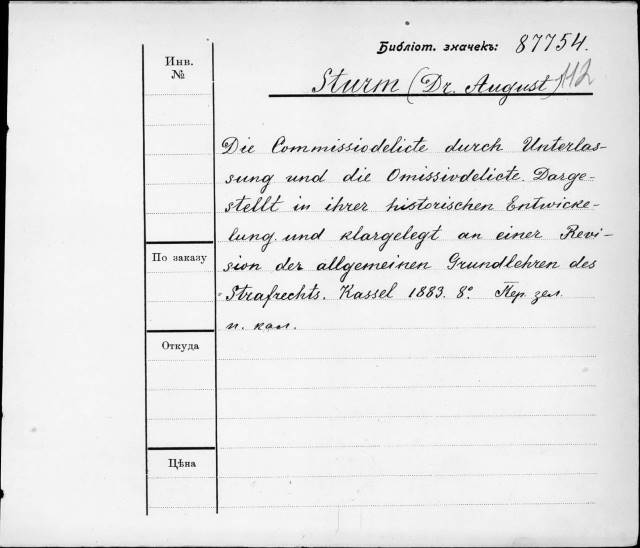 Библіот. значекъ: 87754.
Инв.
№
Sturm (Dr. August) 112
Die Commissiodelicte durch Unterlas-
sung und die Omissivdelicte. Darge-
stellt in ihrer historischen Entwicke-
lung und klargelegt an einer Revi-
По заказу
sion der allgemeinen Grundlehren des
Strafrechts. Kassel 1883. 8°. Пер. зел.
п. кал.
Откуда
Цѣна